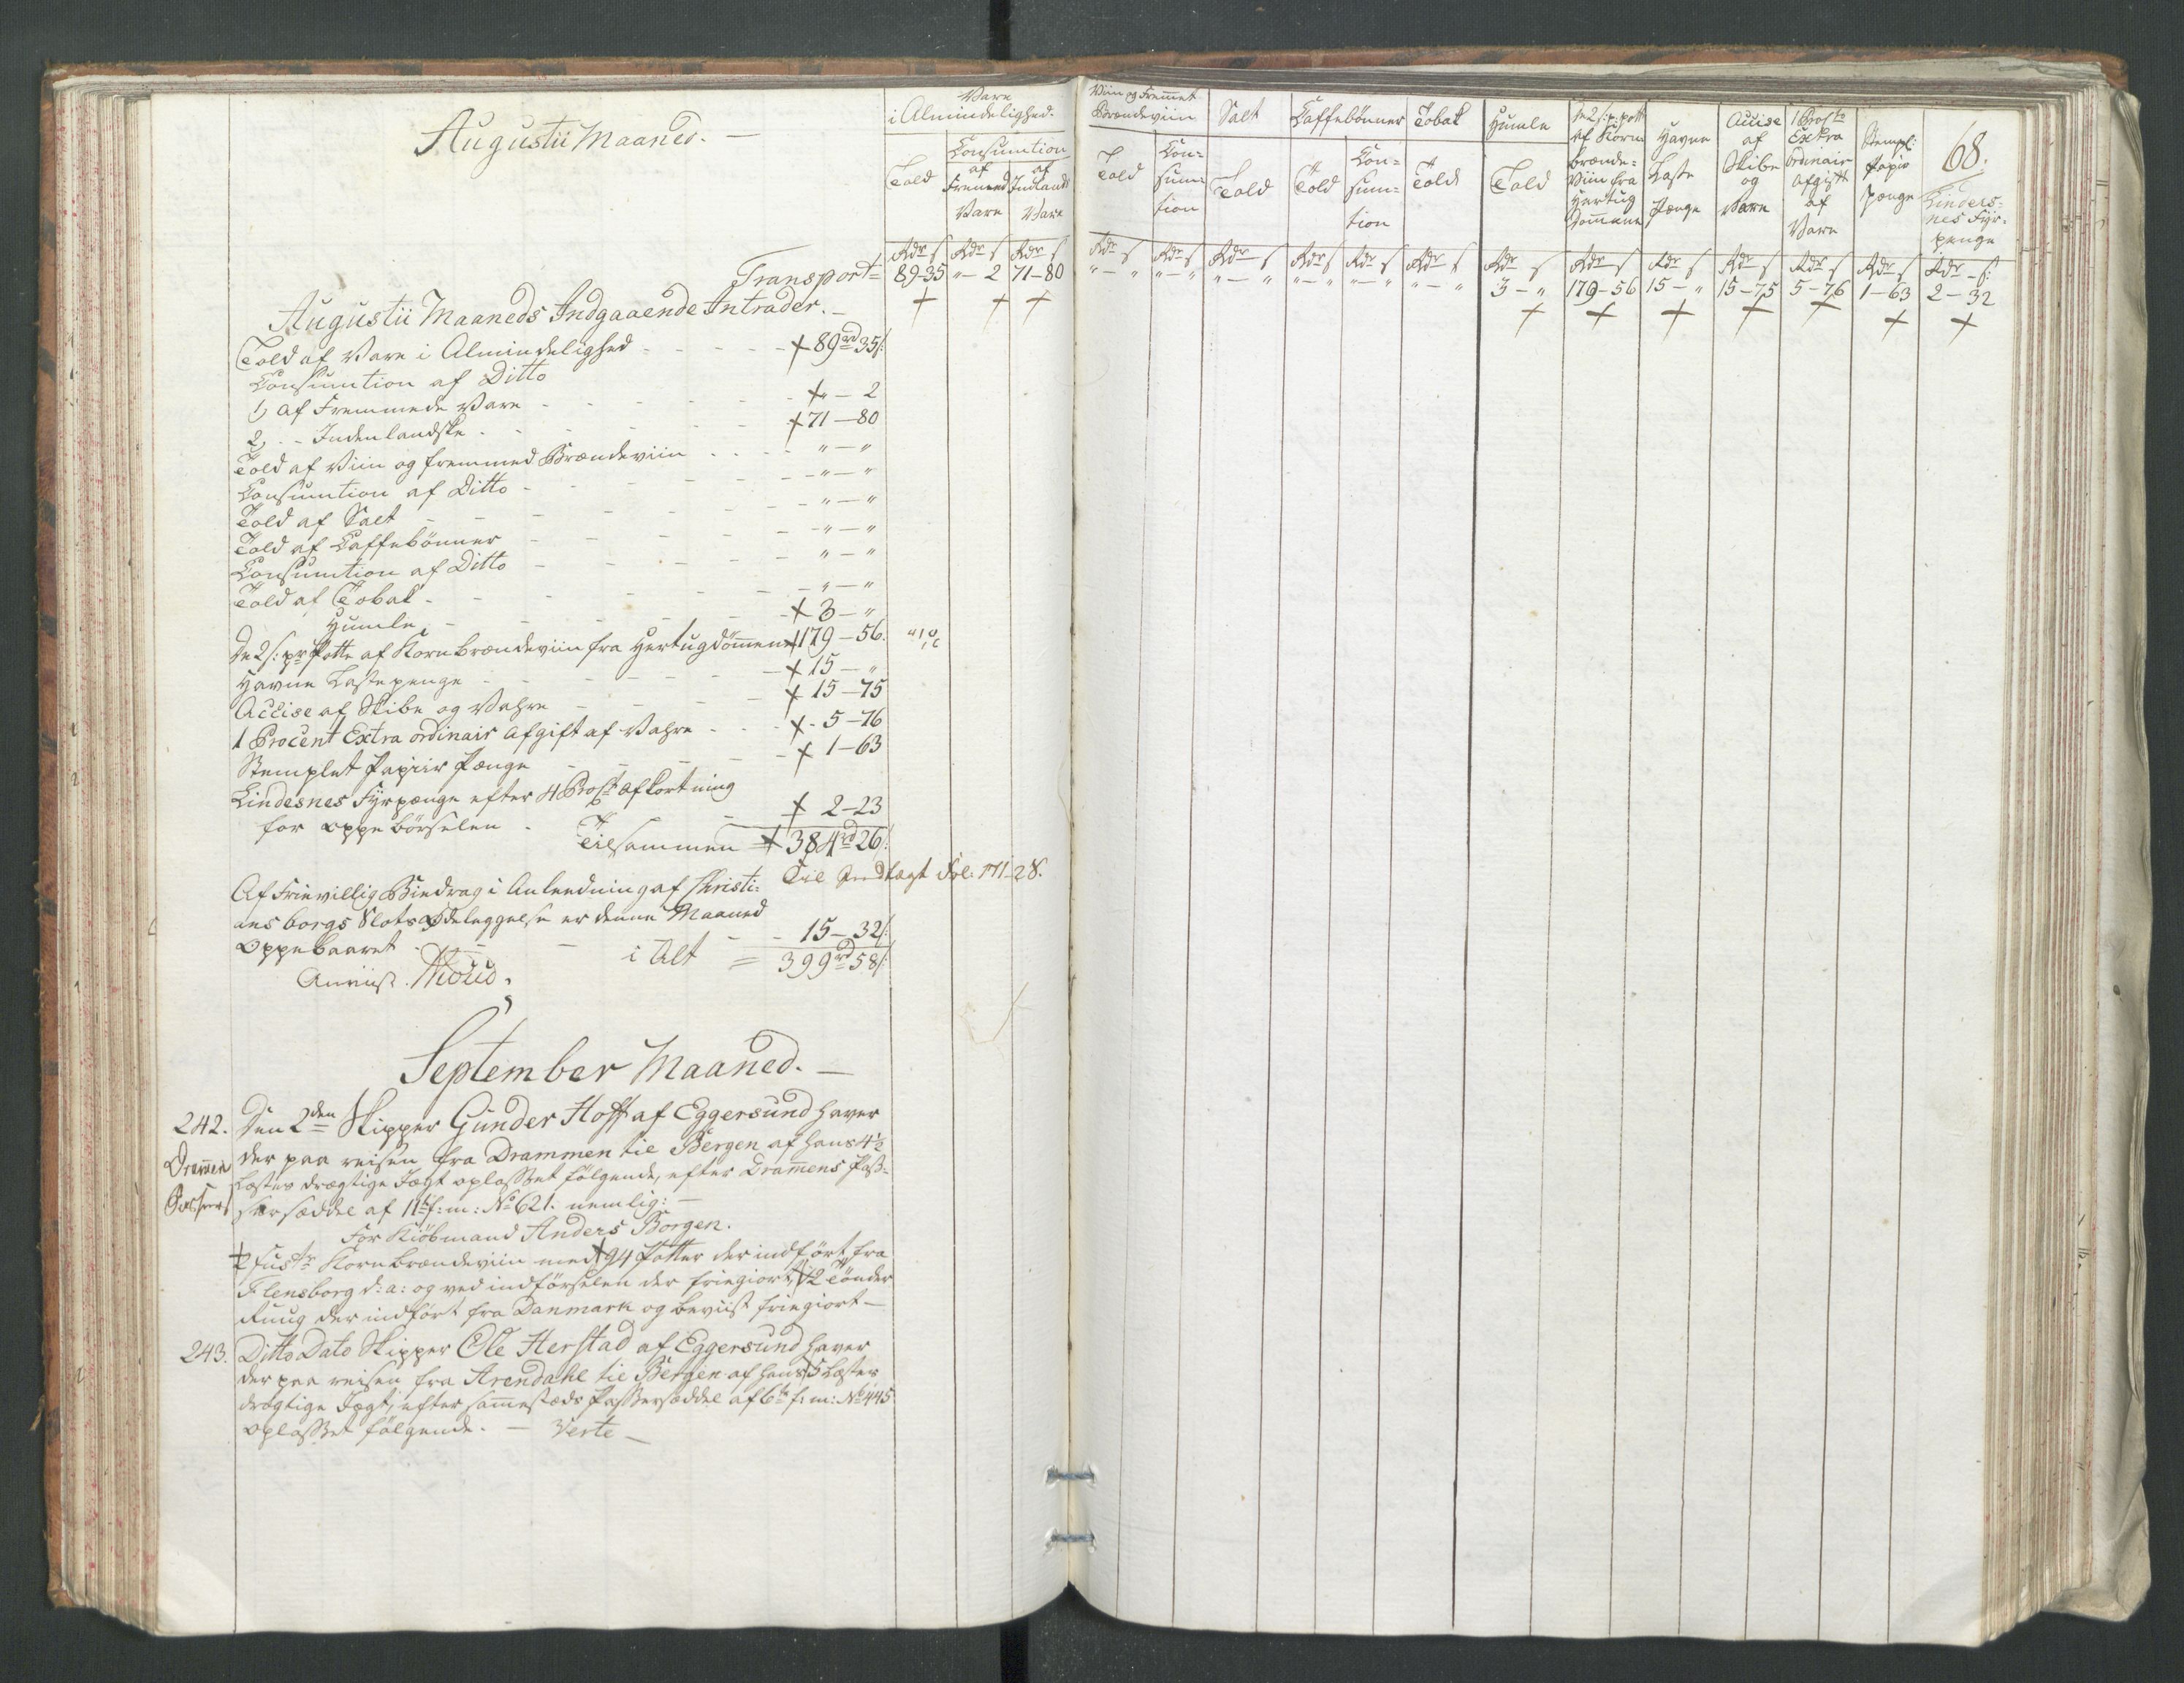 Augustii Maaned. —
Vare
i Almindelighed.
Told
Consumtion
af Fremmed Vare
af Indlands Vare
Viin og Fremmet Brændeviin
Told
Consumtion
Salt
Told
Caffebönner
Told
Consumtion
Tobak
Told
Humle
Told
De 2 s: p: pott af Korn brændeviin fra Hertug Dommene
Havne Laste Penge
Accise af Skibe og Vare
1 Procto Extra ordinair Afgift af Vare
Stempl: Papir penge
68.
Lindersnes Fyrpenge
Rdr s Rdr s Rdr s Rdr s Rdr s Rdr s Rdr s Rdr s Rdr s Rdr s Rdr s Rdr s Rdr s Rdr s Rdr s Rdr s:
Transport 89-35 " — 2 71-80 " — " " — " " — " " — " " — " " — " 3 — " 179-56 15 — " 15-75 5-76 1-63 2-32
Augustii Maaneds Indgaaende Intrader. —
Told af Vare i Almindelighed + 89rd 35s:
Consumtion af Ditto
1, Af Fremmede Vare + " — 2
2, - - Indenlandske + 71 — 80
Told af Viin og fremmed Brændeviin " — "
Consumtion af Ditto " — "
Told af Salt " — "
Told af Caffebönner " — "
Consumtion af Ditto " — "
Told af Tobak " — "
Humle + 3 — "
De 2 s: pr Potte af Kornbrændeviin fra Hertugdömmene + 179 — 56.
Havne Lastepenge + 15 — "
Accise af Skibe og Vahre + 15 — 75
1 Procent Extra ordinair Afgift af Vahre + 5 — 76
Stemplet Papiir Penge + 1 — 63
Lindesnes Fyrpenge efter 4 Proct Afkortning
for oppebörselen + 2 — 23
Tilsammen + 384rd 26s:
Til Indtægt Fol: 171-28.
Af Frievillig Biedrag i Anledning af Christi:
ansborgs Slots Ödeleggelse er denne Maaned
Oppebaaret 15 — 32s:
i Alt = 399rd 58s:
Anviist.
September Maaned. —
242. Den 2den Skipper Gunder Hoff af Eggersund haver
Drammen der paa reisen fra Drammen til Bergen af hans 4½
Læster drægtige Jagt oplosset fölgende, efter Dramens Pas-
sersæddel af 11te f: m: No 621. nemlig: —
For Kiöbmand Anders Borgen.
+ 2 Fustr Kornbrændeviin med + 94 Potter der indfört fra
Flensborg d: a: og ved indförselen der friegiort, + 12 Tönder
Ruug der indfört fra Danmark og beviist friegiort —
243. Ditto Dato Skipper Ole Herstad af Eggersund haver
der paa reisen fra Arendahl til Bergen af hans 5 Læster
drægtige Jagt, efter sammestæds Passersæddel af 6te f: m: No 445
oplosset fölgende. — Verte —